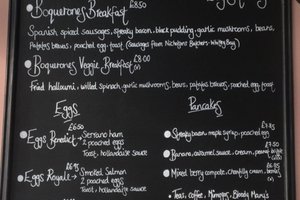 Boquerones Breakfast £8.50
Spanish spiced sausages, streaky bacon, black pudding, garlic mushrooms, beans,
Patatas bravas, poached egg, toast (Sausages from Nicholsons Butchers - Whitley Bay)
Boquerones Veggie Breakfast £8.00 (v)
Fried halloumi, wilted spinach, garlic mushrooms, beans, patatas bravas, poached egg, toast
Eggs
Eggs Benedict £6.50 → Serrano ham
2 poached eggs
Toast, hollandaise sauce
Eggs Royale £6.95 → Smoked Salmon
2 poached eggs
Toast, hollandaise sauce
Pancakes
Streaky bacon, maple syrup, poached egg £7.75
Banana, caramel sauce, cream, £7.50
Mixed berry compote, chantilly cream, £6.95
Teas, coffee, Mimosas, Bloody Mary's